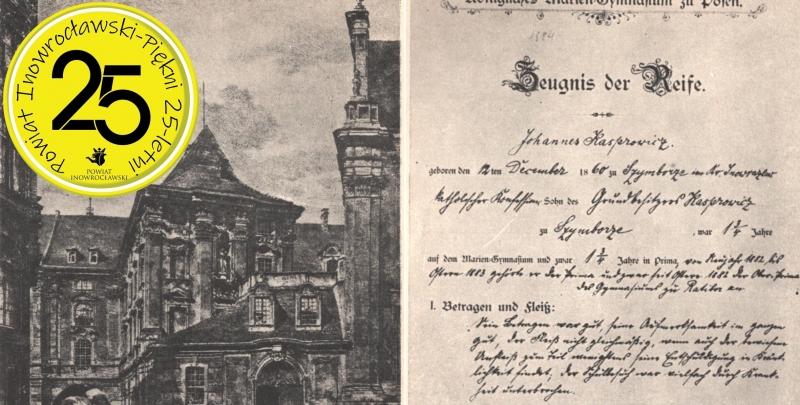 Powiat Inowrocławski-Piękni 25-letni
25
POWIAT
INOWROCŁAWSKI
Königliches Marien-Gymnasium zu Posen.
1884
Zeugnis der Reife.
Johannes Kasprowicz.
geboren den 12 ten December 1860 zu Szymborze im Kr. Inowrazlaw
katholischer Konfession, Sohn des Grundbesitzers Kasprowicz
zu Szymborze, war 1 3/4 Jahre
auf dem Marien-Gymnasium und zwar 1 3/4 Jahre in Prima, von Neujahr 1882 bis
Ostern 1883 gehörte er der Prima und zwar seit Ostern 1882 der Ober-Prima
des Gymnasiums zu Ratibor an
I. Betragen und Fleiß:
Sein Betragen war gut, seine Aufmerksamkeit im ganzen
gut, der Fleiß nicht gleichmäßig, wenn auch der
Unfleiß zum Teil wenigstens seine Entschuldigung in Kränk-
lichkeit findet, der Schulbesuch war vielfach durch Krank-
heit unterbrochen.